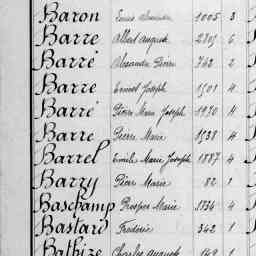 Baron Louis 1005 3
Barre Albert August 2
Barré Alexandre Pierre 742 2
Barre Ernest Joseph 1501 4
Barré Pierre Marie Joseph 1930 4
Barre Pierre Marie 1538 4
Barrel Emile Marie Joseph 1887 4
Barzy Pierre Marie 82 1
Baschamp Prosper Marie 1834 4
Bastard Frédéric 342 1
Bathize Charles August 149 1